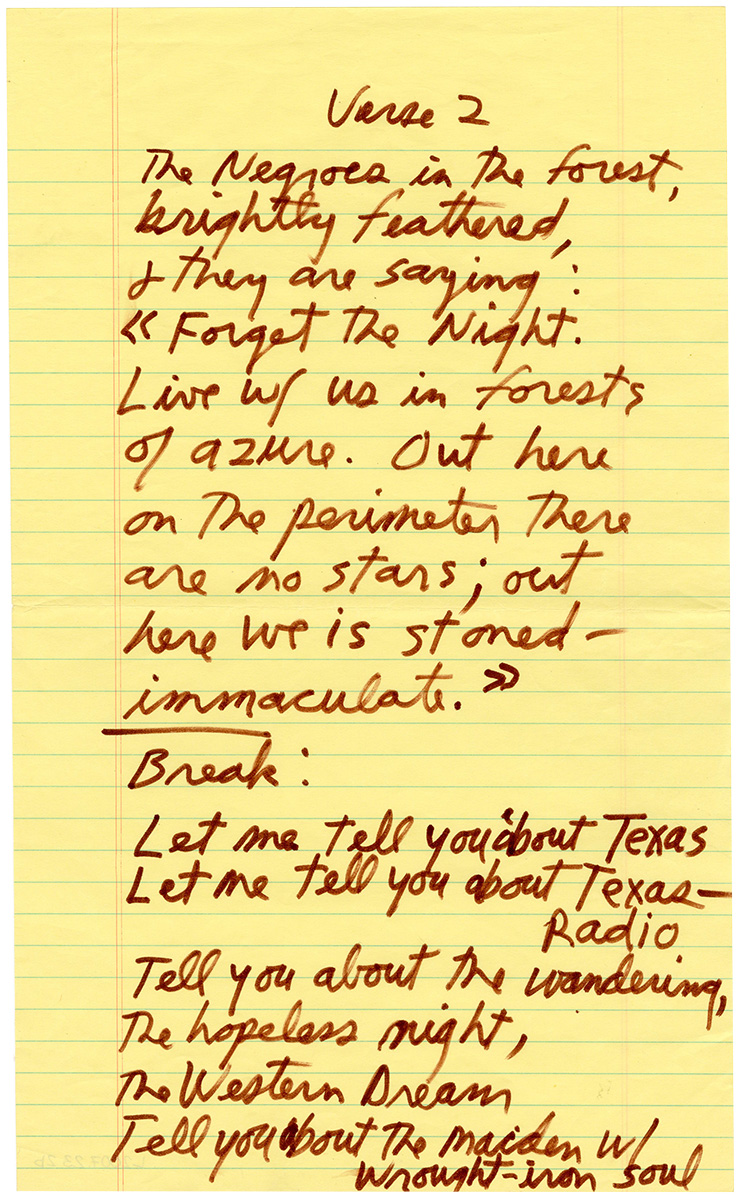 Verse 2
The Negroes in the forest,
brightly feathered,
& they are saying:
« Forget the Night.
Live w/ us in forests
of azure. Out here
on the perimeter there
are no stars; out
here we is stoned—
immaculate. »
Break:
Let me tell you 'bout Texas
Let me tell you about Texas—
Radio
Tell you about the wandering,
The hopeless night,
The Western Dream
Tell you about the maiden w/
wrought-iron soul